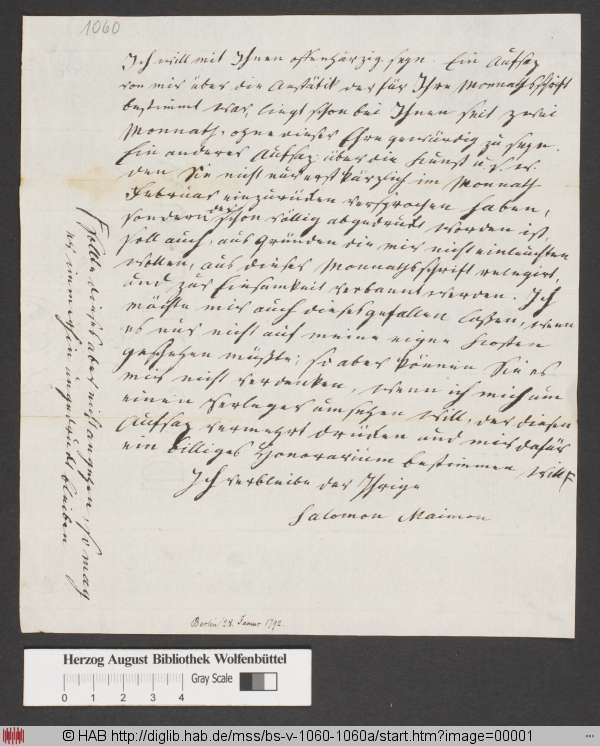 1060
Ich will mit Ihnen offenherzig seyn. Ein Aufsaz
von mir über die Aestätik der für Ihre Monnathsschrift
bestimmt war, liegt schon bei Ihnen seit zwei
Monnath, ohne dieser Ehre gewürdig zu seyn.
Ein anderer Aufsaz über die
den Sie nicht nur erst kürzlich im Monnath
Februar einzurüken versprochen haben,
sondern der schon völlig abgedrukt worden ist,
soll auch, aus Gründen die mir nicht einleuchten
wollen, aus dieser Monnathsschrift relegirt,
und zur Einsamkeit verbannt werden. Ich
möchte mir auch dieses gefallen laßen, wenn
es nur nicht auf meine eigne Kosten
geschehen müßte; so aber können Sie es
mir nicht verdenken, wenn ich mich um
einen Verleger umsehen will, der diesen
Aufsaz vermehrt drüken und mir dafür
ein billiges Honorarium bestimmen will F
Ich verbleibe der Ihrige
Salomon Maimon
F Sollte dieses aber nicht angehen, so mag
er immerhin ungedrukt bleiben
Berlin 28. Januar 1792.
Herzog August Bibliothek Wolfenbüttel
Gray Scale
0 1 2 3 4
© HAB http://diglib.hab.de/mss/bs-v-1060-1060a/start.htm?image=00001